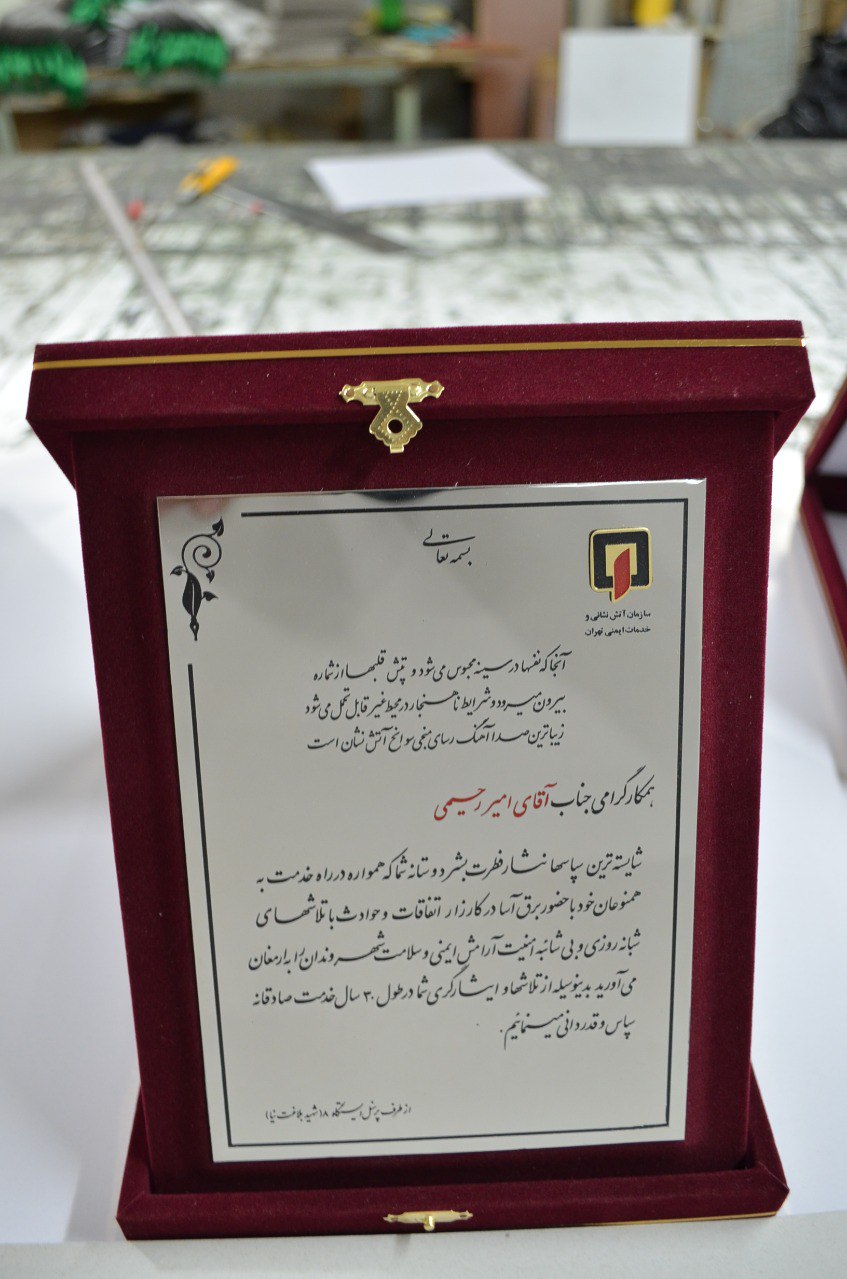 بسمه تعالی
سازمان آتش نشانی و
خدمات ایمنی تهران
آنجا که نفسها در سینه محبوس می شود و تپش قلبها از شماره
بیرون میرود و شرایط ناهنجار در محیط غیر قابل تحمل می شود
زیباترین صدا آهنگ رسای منجی سوانح آتش نشان است
همکار گرامی جناب آقای امیر رحیمی
شایسته ترین سپاسها نثار فطرت بشر دوستانه شما که همواره در راه خدمت به
همنوعان خود با حضور برق آسا در کارزار اتفاقات و حوادث با تلاشهای
شبانه روزی و بی شائبه امنیت آرامش ایمنی و سلامت شهروندان را به ارمغان
می آورید بدینوسیله از تلاشها و ایثارگری شما در طول ۳۰ سال خدمت صادقانه
سپاس و قدردانی مینمائیم.
از طرف پرسنل ایستگاه ۸ (شهید بلاغت نیا)